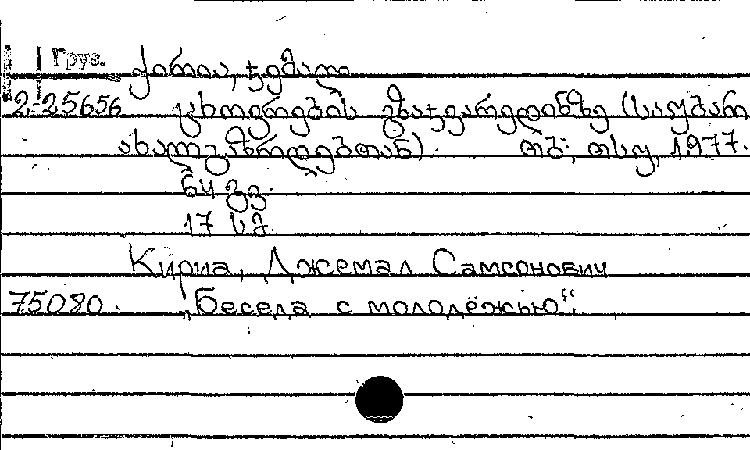 Груз. ქირია, ჯემალ
2-25656 ცხოვრების გზაჯვარედინზე (საუბარი
ახალგაზრდებთან). თბ., თსუ, 1977.
64 გვ.
17 კ.
Кириа, Джемал Самсонович
75080. „Беседа с молодёжью“.